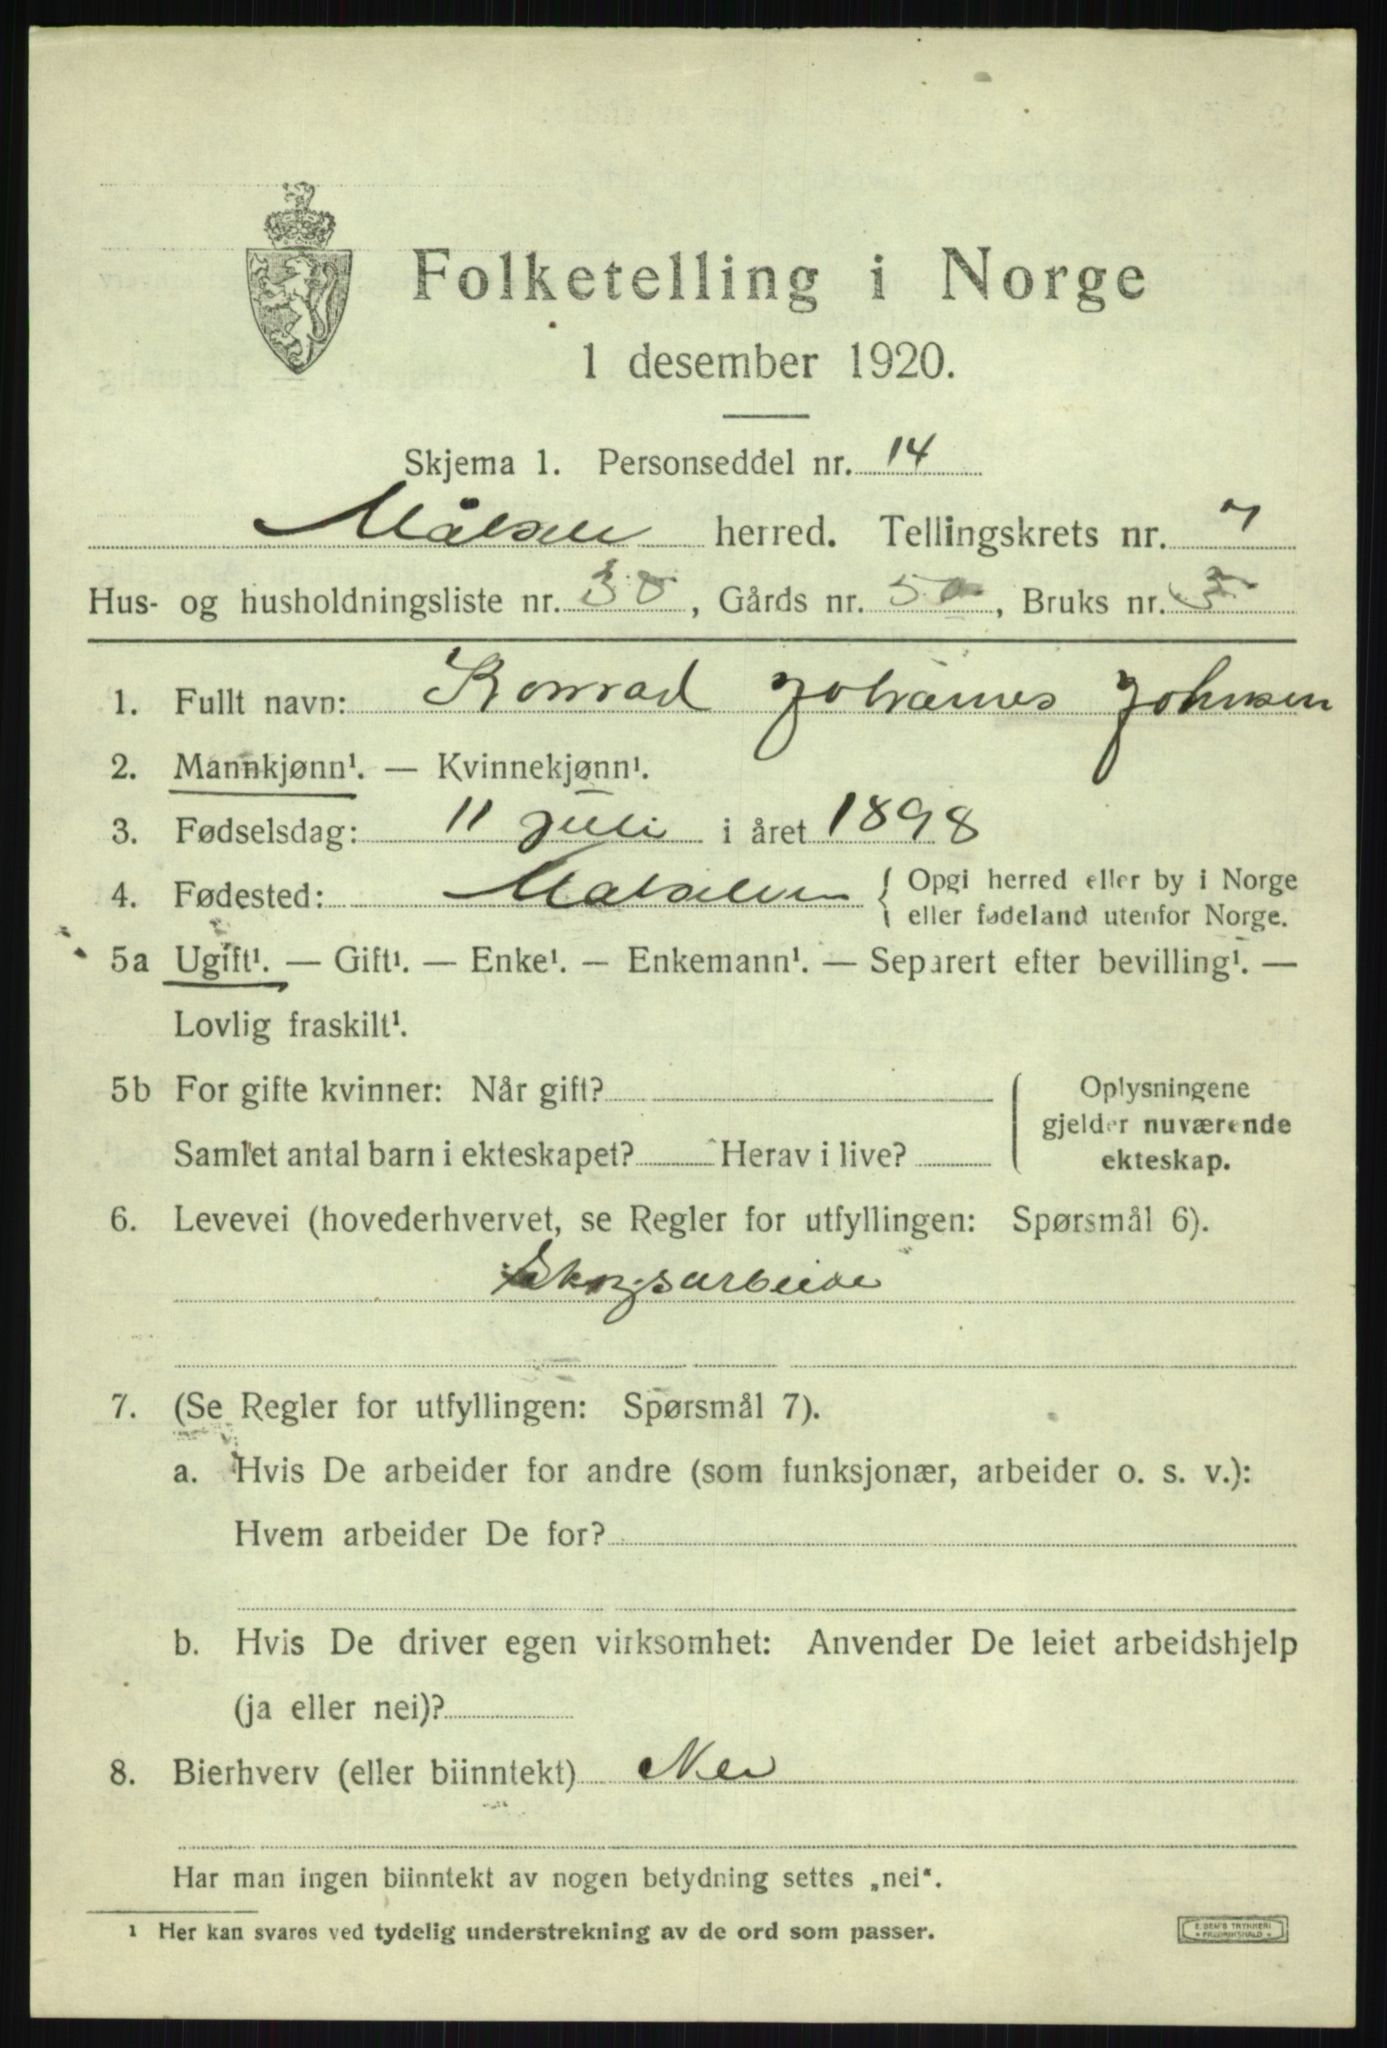 Folketelling i Norge
1 desember 1920.
Skjema 1. Personseddel nr. 14
Målselv herred. Tellingskrets nr. 7
Hus- og husholdningsliste nr. 30, Gårds nr. 50, Bruks nr. 3
1. Fullt navn: Konrad Johannes Johnsen
2. Mannkjønn¹. — Kvinnekjønn¹.
3. Fødselsdag: 11 juli i året 1898
4. Fødested: Målselven { Opgi herred eller by i Norge
eller fødeland utenfor Norge.
5a Ugift¹. — Gift¹. — Enke¹. — Enkemann¹. — Separert efter bevilling¹. —
Lovlig fraskilt¹.
5b For gifte kvinner: Når gift?
Samlet antal barn i ekteskapet? Herav i live?
Oplysningene
gjelder nuværende
ekteskap.
6. Levevei (hovederhvervet, se Regler for utfyllingen: Spørsmål 6).
Skogsarbeide
7. (Se Regler for utfyllingen: Spørsmål 7).
a. Hvis De arbeider for andre (som funksjonær, arbeider o. s. v.):
Hvem arbeider De for?
b. Hvis De driver egen virksomhet: Anvender De leiet arbeidshjelp
(ja eller nei)?
8. Bierhverv (eller biinntekt) Nei
Har man ingen biinntekt av nogen betydning settes „nei“.
¹ Her kan svares ved tydelig understrekning av de ord som passer.
E. SEM'S TRYKKERI
* FREDRIKSHALD *